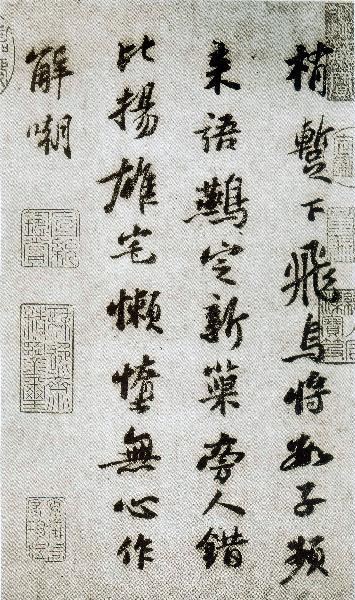 梢暫下飛烏將數子頻
来語鷰定新巢旁人錯
比揚雄宅懶惰無心作
解嘲